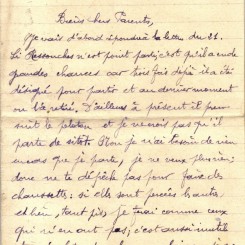 Biens chers Parents,
Je vais d'abord répondre à la lettre du 21.
Si Ressouches n'est point parti, c'est qu'il a eu de
grandes chances car trois fois déjà il a été
désigné pour partir et au dernier moment
on l'a retiré. D'ailleurs à présent il pour
suit le peloton et je ne crois pas qu'il
parte de sitôt. Non je n'ai besoin de rien
encore que je parte, je ne veux plus rien;
donc ne te dépêche pas pour faire des
chaussettes; si elles sont percées
eh bien, tant pis. Je ferai comme ceux
qui n'en ont pas; c'est aussi inutile